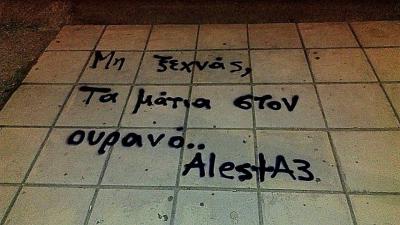 Μη ξεχνάς,
Τα μάτια στον
ουρανό..
AlestA3.